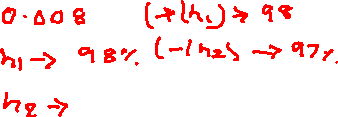 0.008 (+|h₁) → 98
h₁ → 98% (-|h₂) → 97%.
h₂ →